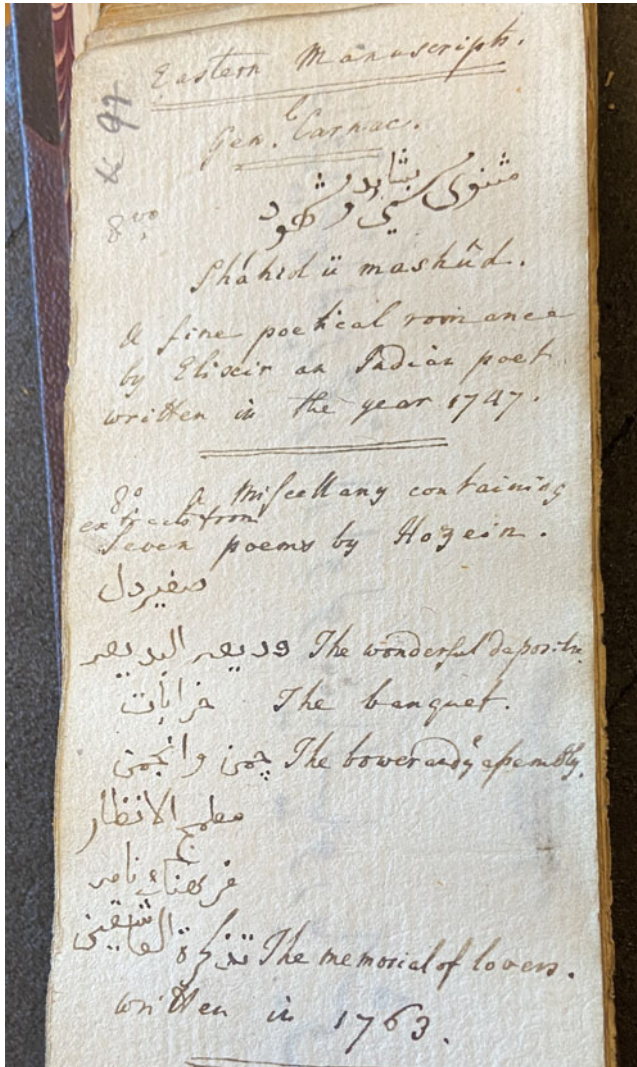 Eastern Manuscripts.
Genl. Carnac.
مثنوی مسمی بشاهد و مشهود
8vo
Sháhid ü mashûd.
A fine poetical romance
by Elixir an Indian poet
written in the year 1747.
8o a Miscellany containing
extracts from
Seven poems by Hozein.
صفیر دل
ودیعه البدیعه The wonderful deposite.
خرابات The banquet.
چمن وانجمن The bower and ye assembly.
مطمح الانظار
فرهنك نامه
تذكرة العاشقین The memorial of lovers.
written in 1763.